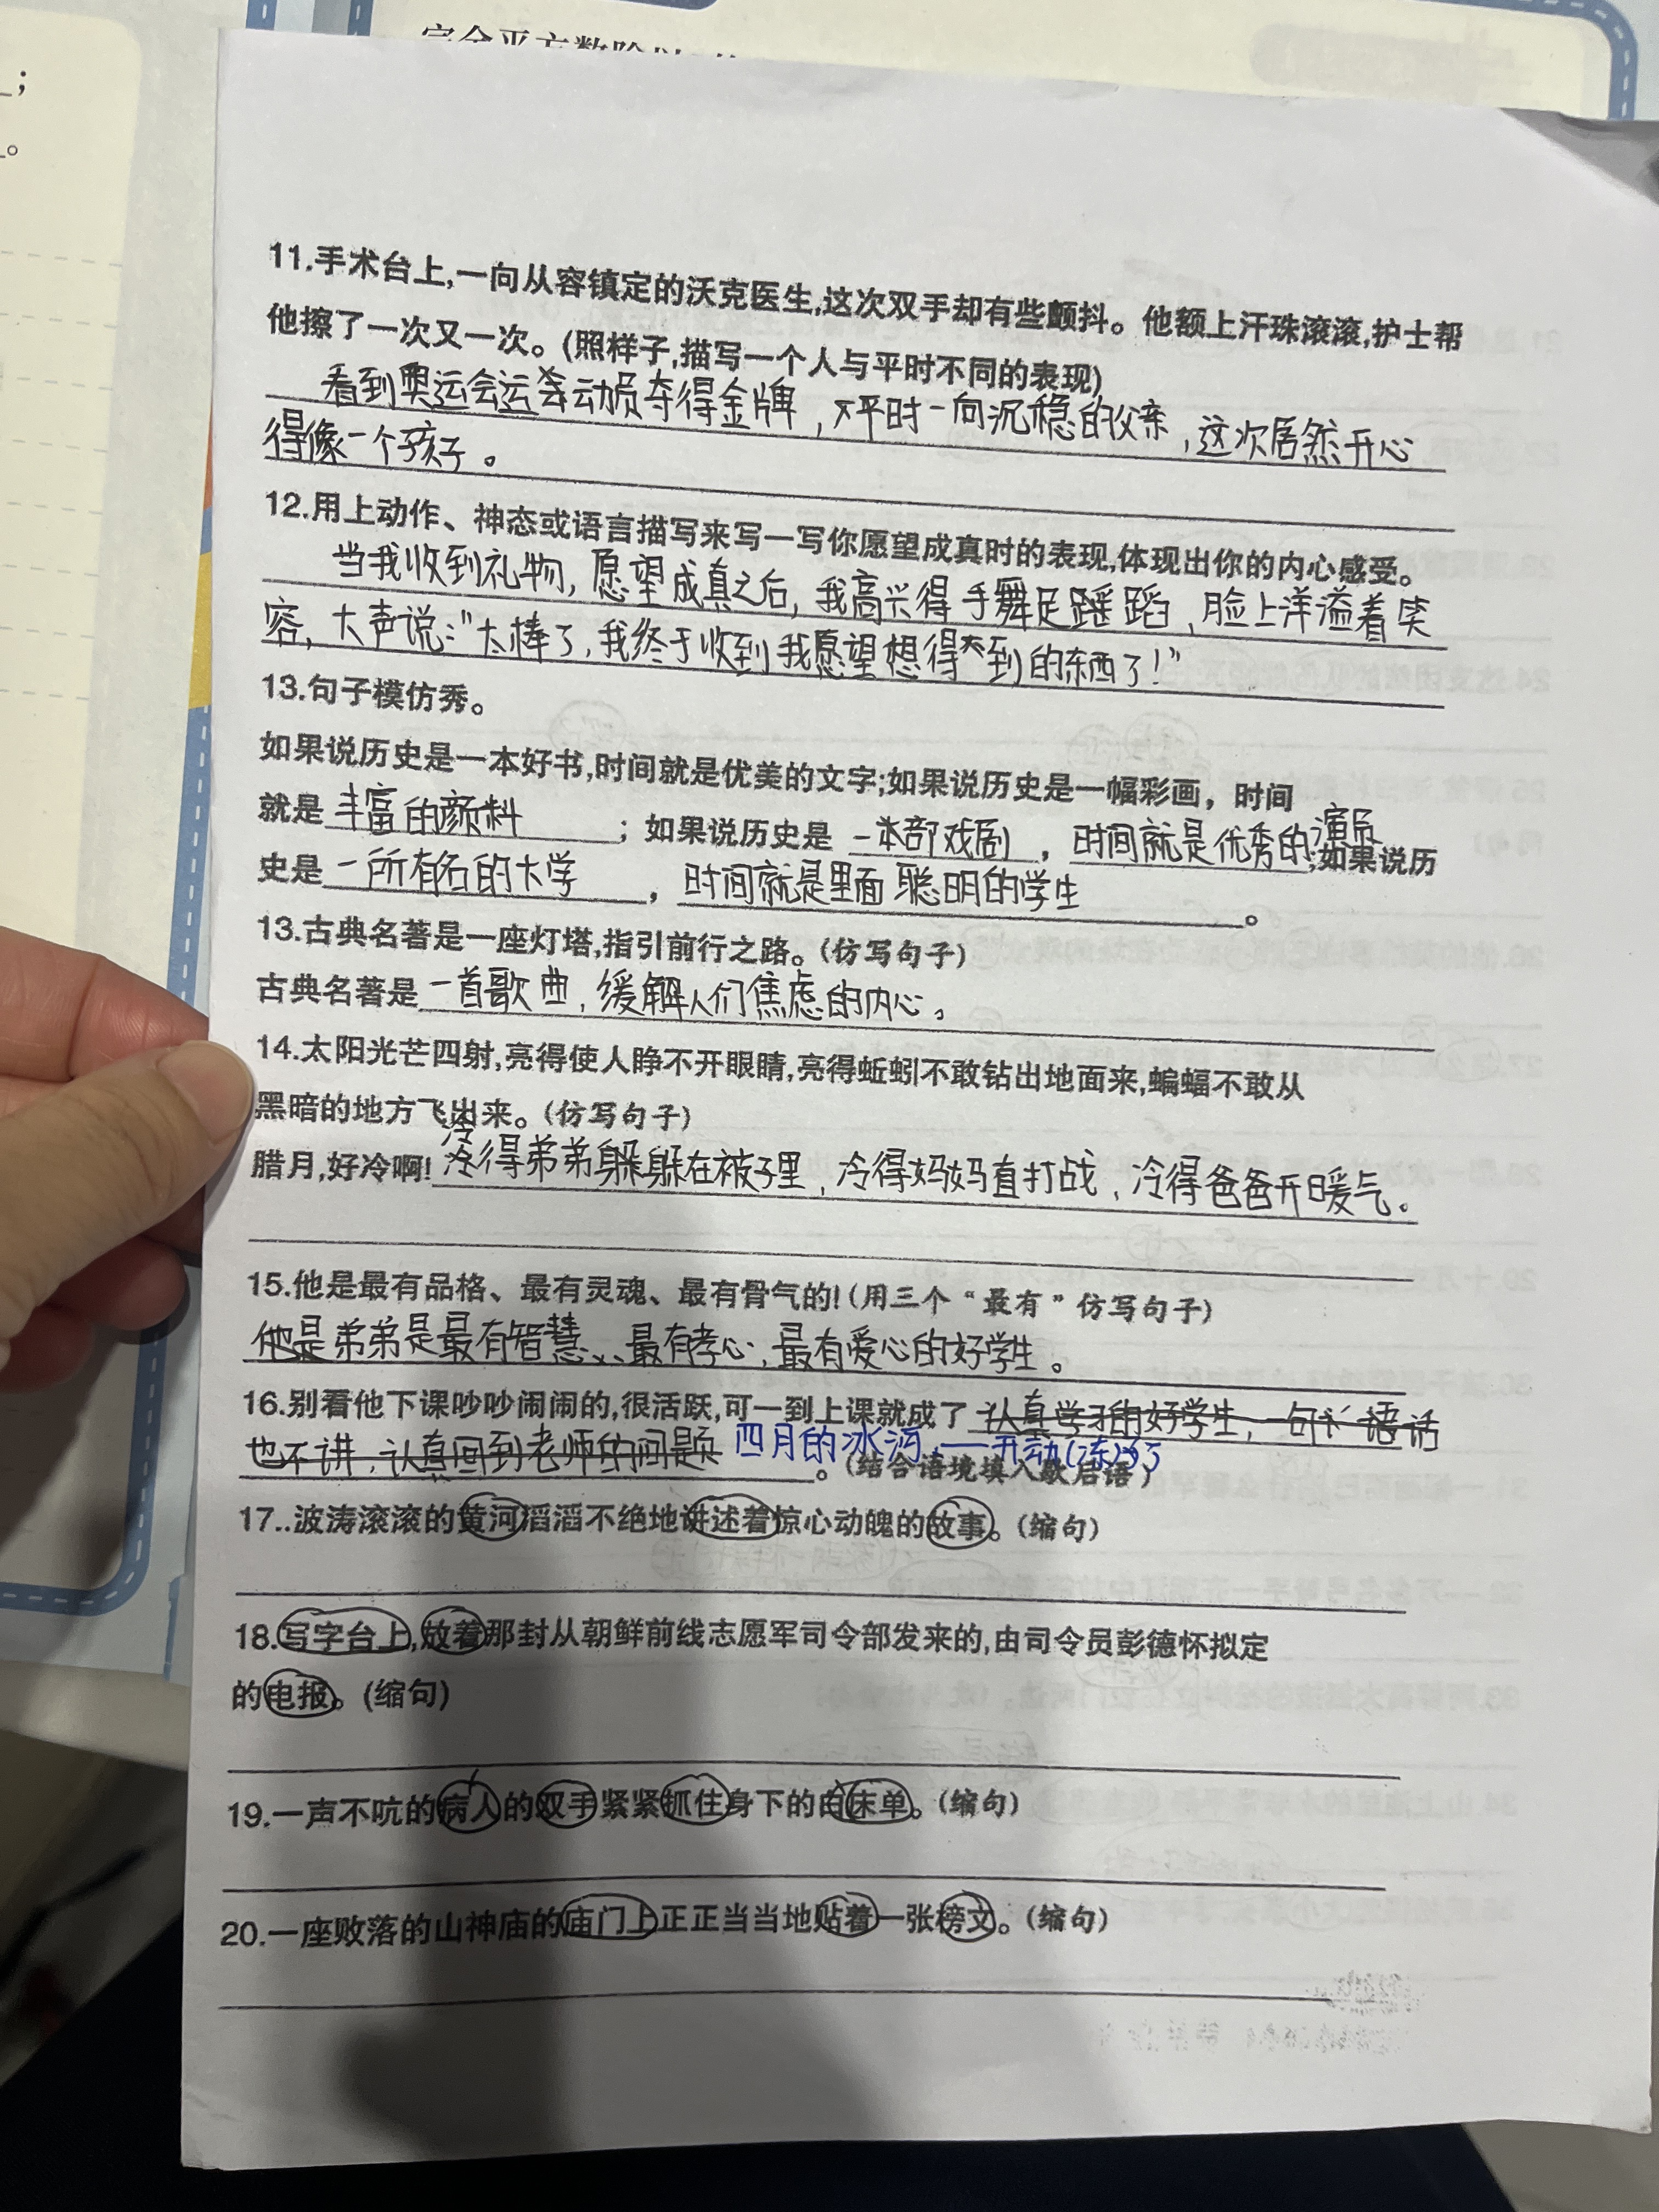 完全平方数除以
；
。
11.手术台上,一向从容镇定的沃克医生,这次双手却有些颤抖。他额上汗珠滚滚,护士帮
他擦了一次又一次。(照样子,描写一个人与平时不同的表现)
看到奥运会运动员夺得金牌，平时一向沉稳的父亲，这次居然开心
得像一个孩子。
12.用上动作、神态或语言描写来写一写你愿望成真时的表现,体现出你的内心感受。
当我收到礼物，愿望成真之后，我高兴得手舞足蹈，脸上洋溢着笑
容，大声说："太棒了，我终于收到我愿望想得到的东西了！"
13.句子模仿秀。
如果说历史是一本好书,时间就是优美的文字;如果说历史是一幅彩画，时间
就是丰富的颜料；如果说历史是一部戏剧，时间就是优秀的演员;如果说历
史是一所有名的大学，时间就是里面聪明的学生。
13.古典名著是一座灯塔,指引前行之路。(仿写句子)
古典名著是一首歌曲，缓解人们焦虑的内心。
14.太阳光芒四射,亮得使人睁不开眼睛,亮得蚯蚓不敢钻出地面来,蝙蝠不敢从
黑暗的地方飞出来。(仿写句子)
腊月,好冷啊!冷得弟弟躲躲在被子里，冷得妈妈直打战，冷得爸爸开暖气。
15.他是最有品格、最有灵魂、最有骨气的!(用三个“最有”仿写句子)
他是弟弟是最有智慧、最有孝心、最有爱心的好学生。
16.别看他下课吵吵闹闹的,很活跃,可一到上课就成了认真学习的好学生，一句话
也不讲，认真回到老师的问题 四月的冰河——开动(冻)了。(结合语境填入歇后语)
17..波涛滚滚的黄河滔滔不绝地讲述着惊心动魄的故事。(缩句)
18.写字台上,放着那封从朝鲜前线志愿军司令部发来的,由司令员彭德怀拟定
的电报。(缩句)
19.一声不吭的病人的双手紧紧抓住身下的白床单。(缩句)
20.一座败落的山神庙的庙门上正正当当地贴着一张榜文。(缩句)